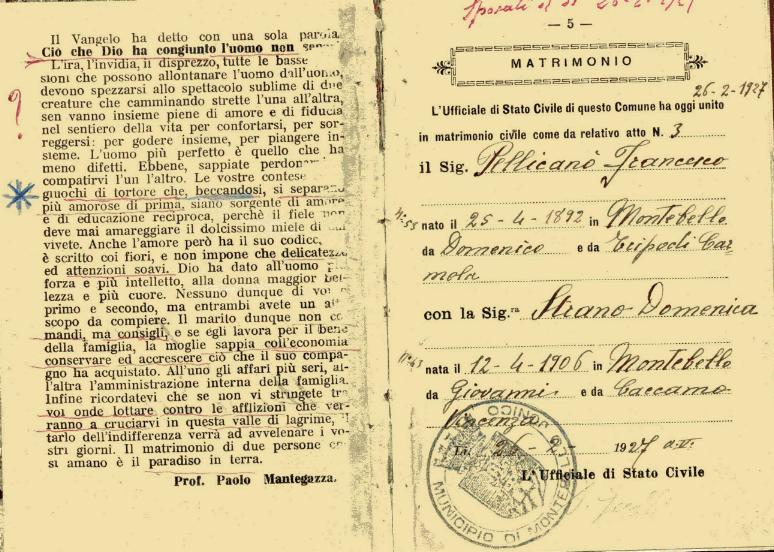 Il Vangelo ha detto con una sola parola
Ciò che Dio ha congiunto l'uomo non
L'ira, l'invidia, il disprezzo, tutte le basse
sioni che possono allontanare l'uomo dall'uomo,
devono spezzarsi allo spettacolo sublime di due
creature che camminando strette l'una all'altra,
sen vanno insieme piene di amore e di fiducia
nel sentiero della vita per confortarsi, per sor-
reggersi: per godere insieme, per piangere in-
sieme. L'uomo più perfetto è quello che ha
meno difetti. Ebbene, sappiate perdonar
compatirvi l'un l'altro. Le vostre contese
gnochi di tortore che, beccandosi, si separano
più amorose di prima, siano sorgente di amore
e di educazione reciproca, perchè il fiele non
deve mai amareggiare il dolcissimo miele di
vivete. Anche l'amore però ha il suo codice,
è scritto coi fiori, e non impone che delicatezze
ed attenzioni soavi. Dio ha dato all'uomo
forza e più intelletto, alla donna maggior bel-
lezza e più cuore. Nessuno dunque di voi
primo e secondo, ma entrambi avete un
scopo da compiere. Il marito dunque non co
mandi, ma consigli, e se egli lavora per il bene
della famiglia, la moglie sappia coll'economia
conservare ed accrescere ciò che il suo compa-
gno ha acquistato. All'uno gli affari più seri, al-
l'altra l'amministrazione interna della famiglia.
Infine ricordatevi che se non vi stringete tra
voi onde lottare contro le afflizioni che ver-
ranno a cruciarvi in questa valle di lagrime, il
tarlo dell'indifferenza verrà ad avvelenare i vo-
stri giorni. Il matrimonio di due persone
si amano è il paradiso in terra.
Prof. Paolo Mantegazza.
?
Sposati
— 5 —
MATRIMONIO
26-2-1927
L'Ufficiale di Stato Civile di questo Comune ha oggi unito
in matrimonio civile come da relativo atto N. 3
il Sig. Pellicanò Francesco
nato il 25-4-1892 in Montebello
da Domenico e da Tripodi Car-
mela
con la Sig.ra Strano Domenica
nata il 12-4-1906 in Montebello
da Giovanni e da Caccamo
Vincenza
Lì, 26-2-1927
L'Ufficiale di Stato Civile
MUNICIPIO DI MONTEBELLO JONICO